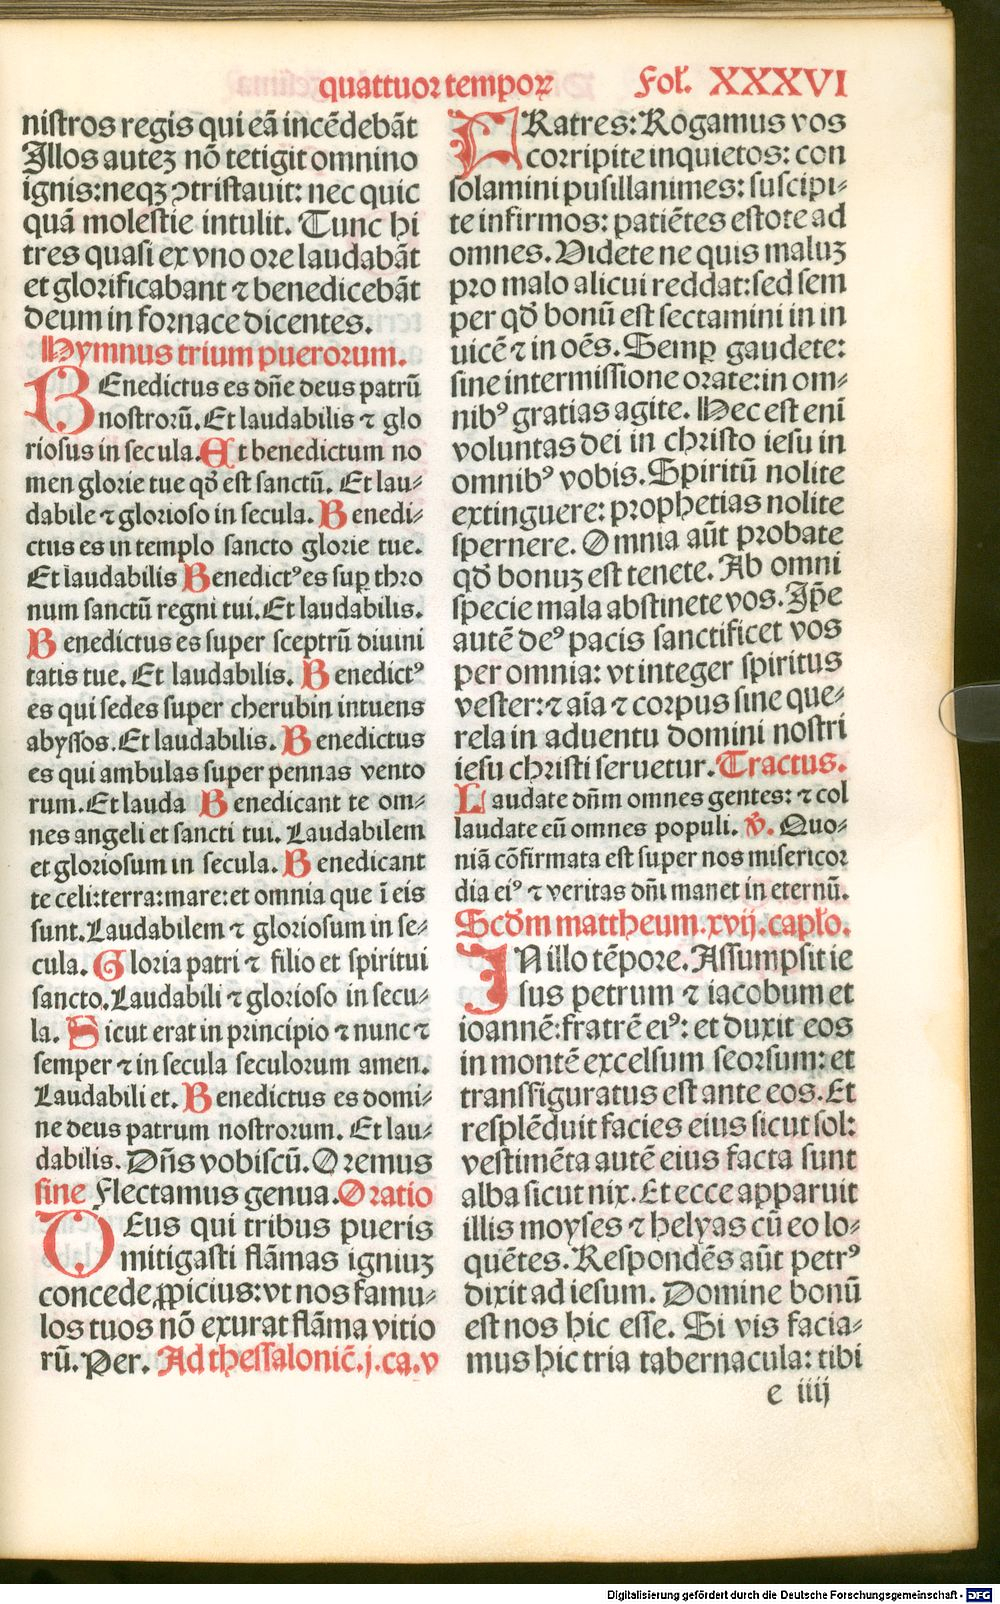 quattuor tempoꝝ Fol. XXXVI
nistros regis qui eā incēdebāt
Illos auteʒ nō tetigit omnino
ignis: neqꝫ ꝯtristauit: nec quic
quā molestie intulit. Tunc hi
tres quasi ex vno ore laudabāt
et glorificabant ⁊ benedicebāt
deum in fornace dicentes.
Hymnus trium puerorum.
BEnedictus es dn̄e deus patrū
nostrorū. Et laudabilis ⁊ glo
riosus in secula. Et benedictum no
men glorie tue qđ est sanctū. Et lau⸗
dabile ⁊ glorioso in secula. Benedi⸗
ctus es in templo sancto glorie tue.
Et laudabilis Benedictꝰ es suꝑ thro
num sanctū regni tui. Et laudabilis.
Benedictus es super sceptrū diuini
tatis tue. Et laudabilis. Benedictꝰ
es qui sedes super cherubin intuens
abyssos. Et laudabilis. Benedictus
es qui ambulas super pennas vento
rum. Et lauda Benedicant te om⸗
nes angeli et sancti tui. Laudabilem
et gloriosum in secula. Benedicant
te celi: terra: mare: et omnia que ī eis
sunt. Laudabilem ⁊ gloriosum in se⸗
cula. Gloria patri ⁊ filio et spiritui
sancto. Laudabili ⁊ glorioso in secu⸗
la. Sicut erat in principio ⁊ nunc ⁊
semper ⁊ in secula seculorum amen.
Laudabili et. Benedictus es domi⸗
ne deus patrum nostrorum. Et lau⸗
dabilis. Dn̄s vobiscū. Oremus
sine Flectamus genua. Oratio
DEus qui tribus pueris
mitigasti flāmas igniuʒ
concede ꝓpicius: vt nos famu⸗
los tuos nō exurat flāma vitio
rū. Per. Ad thessalonic̄. j. ca. v
FRatres: Rogamus vos
corripite inquietos: con
solamini pusillanimes: suscipi⸗
te infirmos: patiētes estote ad
omnes. Videte ne quis maluʒ
pro malo alicui reddat: sed sem
per qđ bonū est sectamini in in
uicē ⁊ in oēs. Semꝑ gaudete:
sine intermissione orate: in om⸗
nibꝰ gratias agite. Hec est enī
voluntas dei in christo iesu in
omnibꝰ vobis. Spiritū nolite
extinguere: prophetias nolite
spernere. Omnia aūt probate
qđ bonuʒ est tenete. Ab omni
specie mala abstinete vos. Ip̄e
autē deꝰ pacis sanctificet vos
per omnia: vt integer spiritus
vester: ⁊ aīa ⁊ corpus sine que⸗
rela in aduentu domini nostri
iesu christi seruetur. Tractus.
Laudate dn̄m omnes gentes: ⁊ col
laudate eū omnes populi. ℣. Quo⸗
niā cōfirmata est super nos misericor
dia eiꝰ ⁊ veritas dn̄i manet in eternū.
Scđm mattheum. xvij. caplo.
IN illo tēpore. Assumpsit ie
sus petrum ⁊ iacobum et
ioannē: fratrē eiꝰ: et duxit eos
in montē excelsum seorsum: et
transfiguratus est ante eos. Et
resplēduit facies eius sicut sol:
vestimēta autē eius facta sunt
alba sicut nix. Et ecce apparuit
illis moyses ⁊ helyas cū eo lo⸗
quētes. Respondēs aūt petrꝰ
dixit ad iesum. Domine bonū
est nos hic esse. Si vis facia⸗
mus hic tria tabernacula: tibi
e iiij
Digitalisierung gefördert durch die Deutsche Forschungsgemeinschaft - DFG